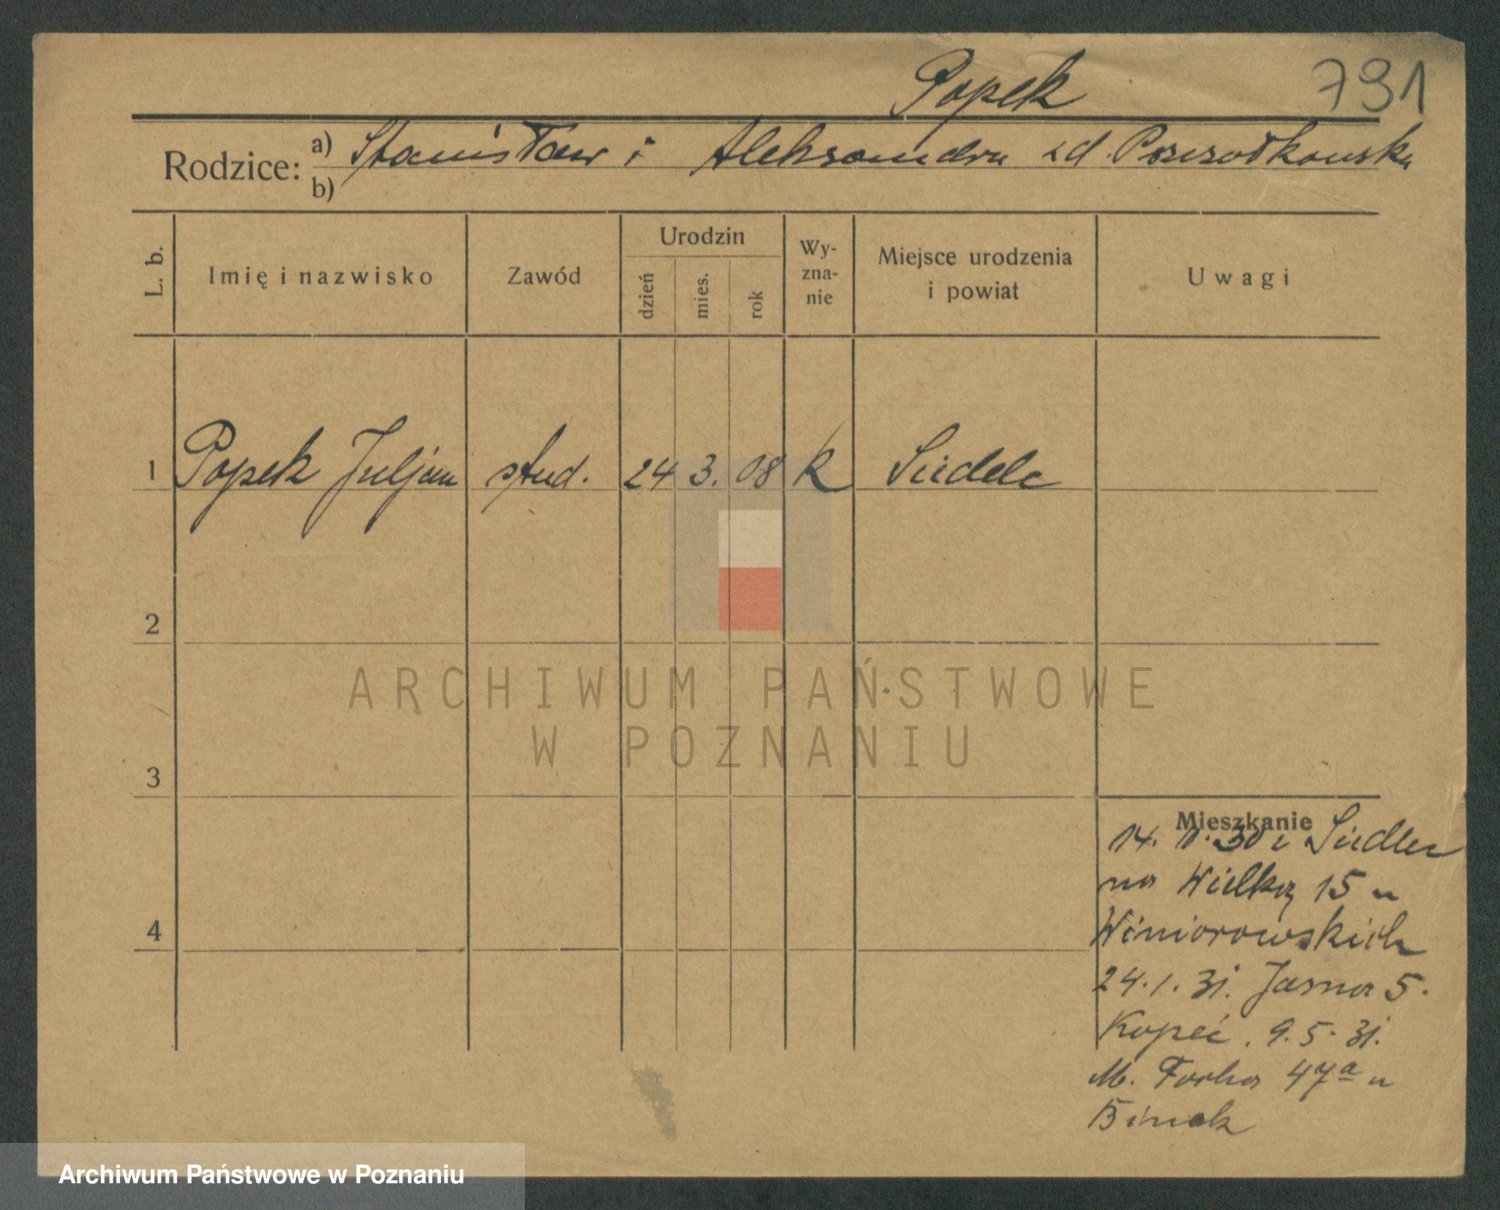 Popek
791
Rodzice: a) Stanisław i Aleksandra zd.
b)
L. b.
Imię i nazwisko
Zawód
Urodzin
dzień
mies.
rok
Wy-
zna-
nie
Miejsce urodzenia
i powiat
Uwagi
1 Popek Juljan stud. 24 3. 08 k Siedlc
2
3
4
ARCHIWUM PAŃSTWOWE
W POZNANIU
Mieszkanie
14. 30 z Siedlec
na Wielką 15 u
Winiorowskich
24.1.31. Jasna 5.
Kopeć. 9.5.31.
M. Focha 47a u
Binek
Archiwum Państwowe w Poznaniu